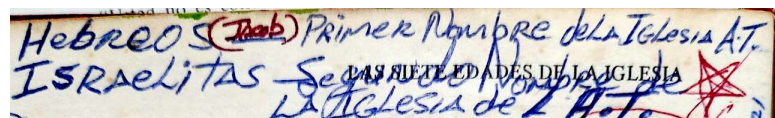 HebREOS (Jacob) PRIMER NOMBRE de LA IGLESIA A.T.
ISRAELITAS Segundo Nombre de
LAS SIETE EDADES DE LA IGLESIA
LA IGLESIA de L A.T.